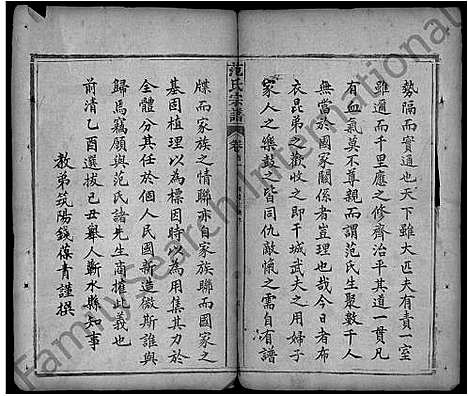 勢隔而實通也天下雖大匹夫有責一室
雖通而千里應之修齊治平其道一貫凡
有血氣莫不尊親而謂范氏生聚數千人
無當於國家關係者豈理也哉今日者布
衣昆弟之歡收之即干城武夫之用婦子
家人之樂鼓之皆同仇敵愾之需自有譜
范氏宗譜
卷
牒而家族之情聯亦自家族聯而國家之
基固植理以為標因時以為用集其力於
全體分其任於個人民國新造微斯誰與
歸焉竊願與范氏諸先生商搉此義也
前清乙酉選拔己丑舉人蘄水縣知事
教弟武陽錢葆青謹撰
FamilySearch International